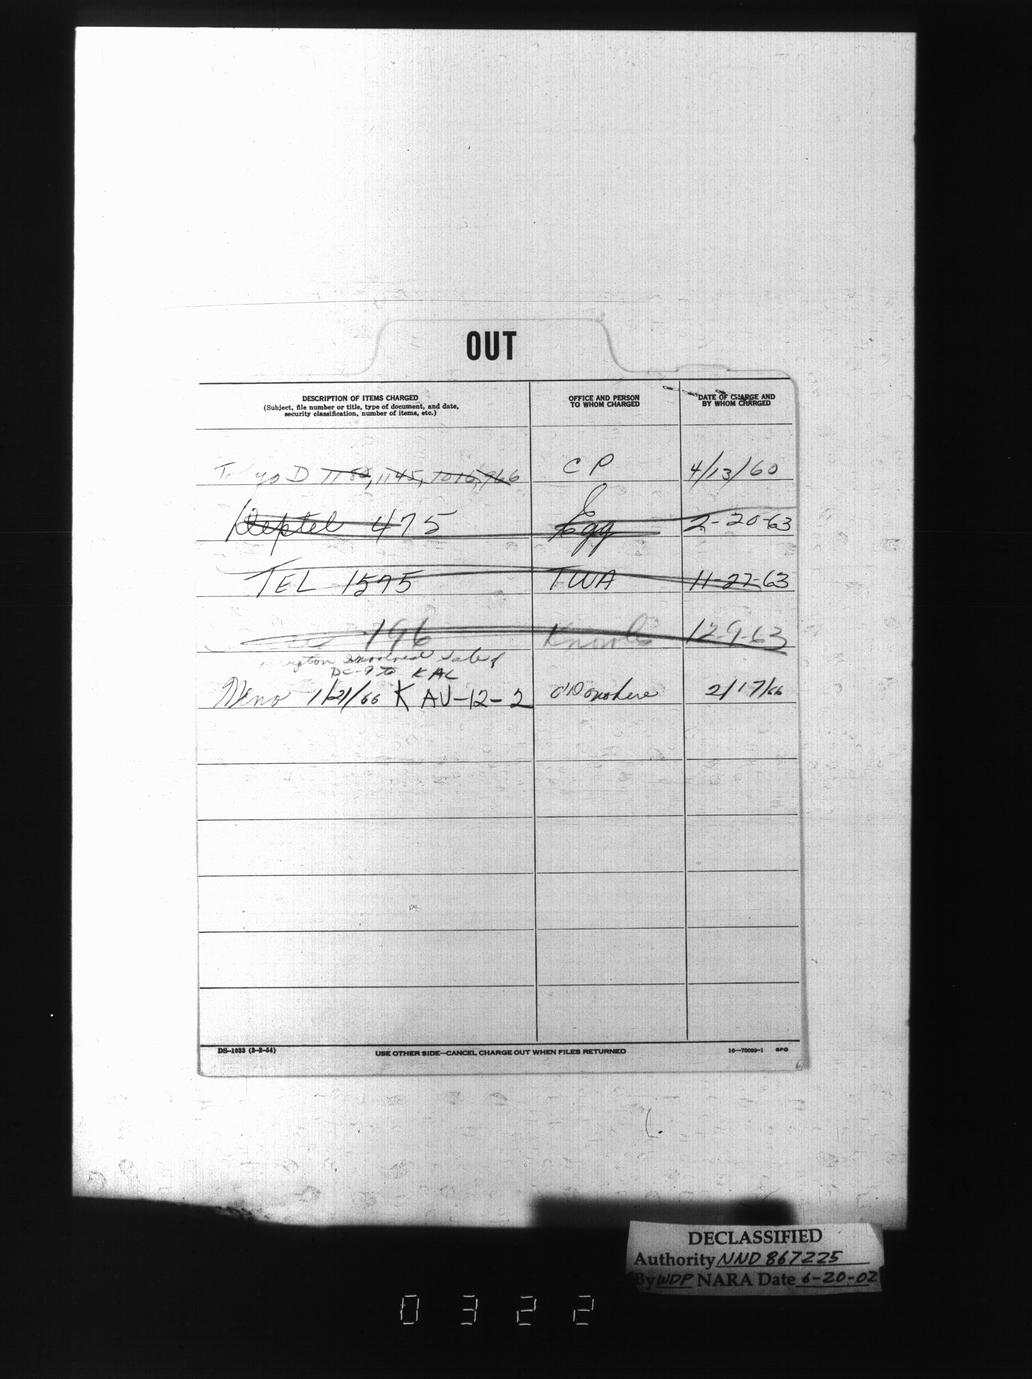 OUT
DESCRIPTION OF ITEMS CHARGED
(Subject, file number or title, type of document, and date,
security classification, number of items, etc.)
OFFICE AND PERSON
TO WHOM CHARGED
DATE OF CHARGE AND
BY WHOM CHARGED
D 1145, 1016, 966 CP 4/13/60
Deptel 475 Egg 2-20-63
TEL 1595 TWA 11-27-63
196 12-9-63
Sale of
DC-9 to KAL
Memo 1/21/66 K AV-12-2 O'Donohue 2/17/66
DS-1033 (3-2-54)
USE OTHER SIDE—CANCEL CHARGE OUT WHEN FILES RETURNED
GPO
DECLASSIFIED
Authority NND 867225
By WDP NARA Date 6-20-02
0322